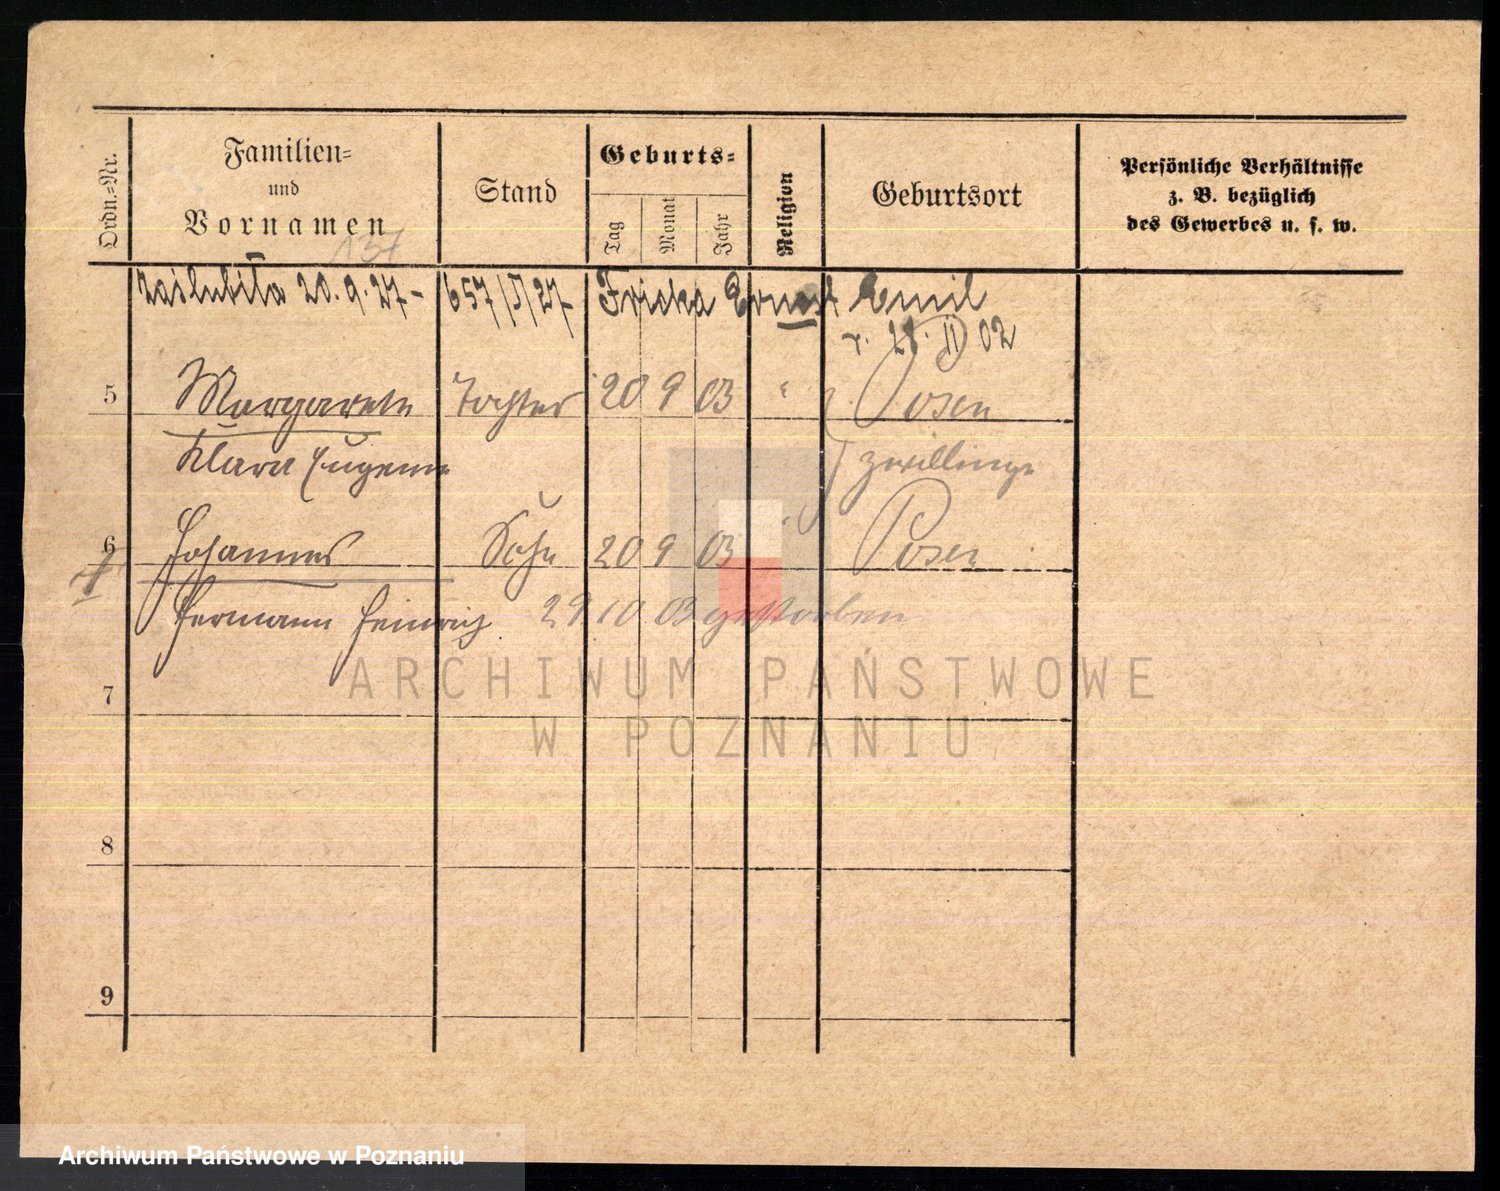 Ordn.-Nr.
Familien-
und
Vornamen
Stand
Geburts-
Tag
Monat
Jahr
Religion
Geburtsort
Persönliche Verhältnisse
z. B. bezüglich
des Gewerbes u. s. w.
131
zaślubiła 20.9.27- 657/J/27 Fricka Ernst Emil
r. 28.II 02
5 Margarete Tochter 20 9 03 " Posen
Klara Eugenie Zwillinge
6 Johannes Sohn 20 9 03 Posen
Hermann Heinrich 29 10 03 gestorben
7
8
9
ARCHIWUM PAŃSTWOWE
W POZNANIU
Archiwum Państwowe w Poznaniu